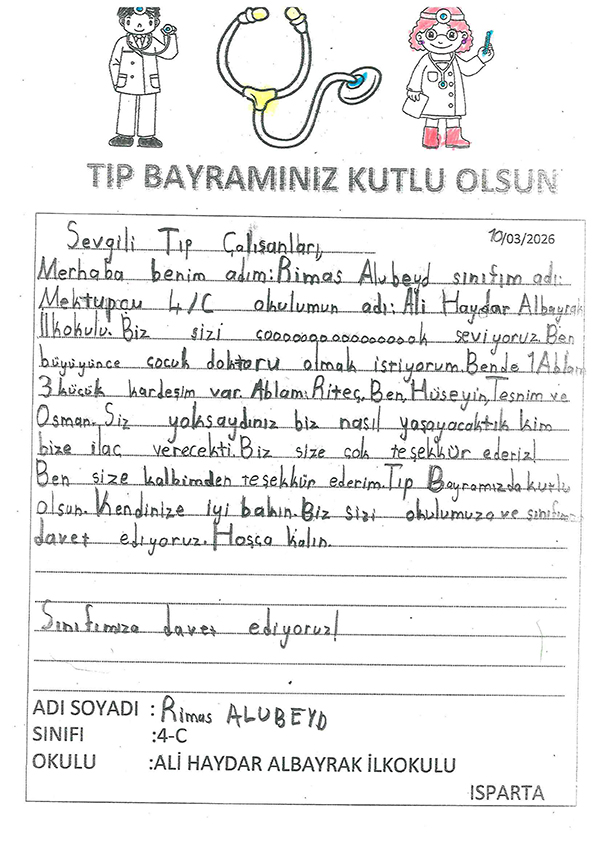 TIP BAYRAMINIZ KUTLU OLSUN
10/03/2026
Sevgili Tıp Çalışanları,
Merhaba benim adım: Rimas Alubeyd sınıfım adı:
Mektupçu 4/C okulumun adı: Ali Haydar Albayrak
İlkokulu. Biz sizi çooooooooooooooook seviyoruz. Ben
büyüyünce çocuk doktoru olmak istiyorum. Bende 1 Ablam
3 küçük kardeşim var. Ablam: Riteç, Ben, Hüseyin, Tesnim ve
Osman. Siz yoksaydınız biz nasıl yaşayacaktık kim
bize ilaç verecekti. Biz size çok teşekkür ederiz!
Ben size kalbimden teşekkür ederim. Tıp Bayramızda kutlu
olsun. Kendinize iyi bakın. Biz sizi okulumuza ve
davet ediyoruz. Hoşça Kalın.
Sınıfımıza davet ediyoruz!
ADI SOYADI : Rimas ALUBEYD
SINIFI :4-C
OKULU :ALİ HAYDAR ALBAYRAK İLKOKULU
ISPARTA